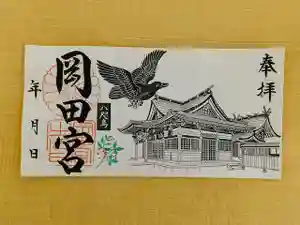 奉拝
八咫烏
岡田宮
年月日